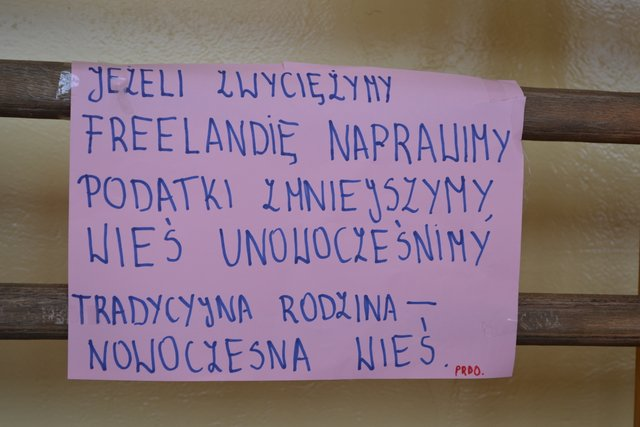 JEŻELI ZWYCIĘŻYMY
FREELANDIĘ NAPRAWIMY
PODATKI ZMNIEJSZYMY,
WIEŚ UNOWOCZEŚNIMY
TRADYCYJNA RODZINA —
NOWOCZESNA WIEŚ.
PRDO.